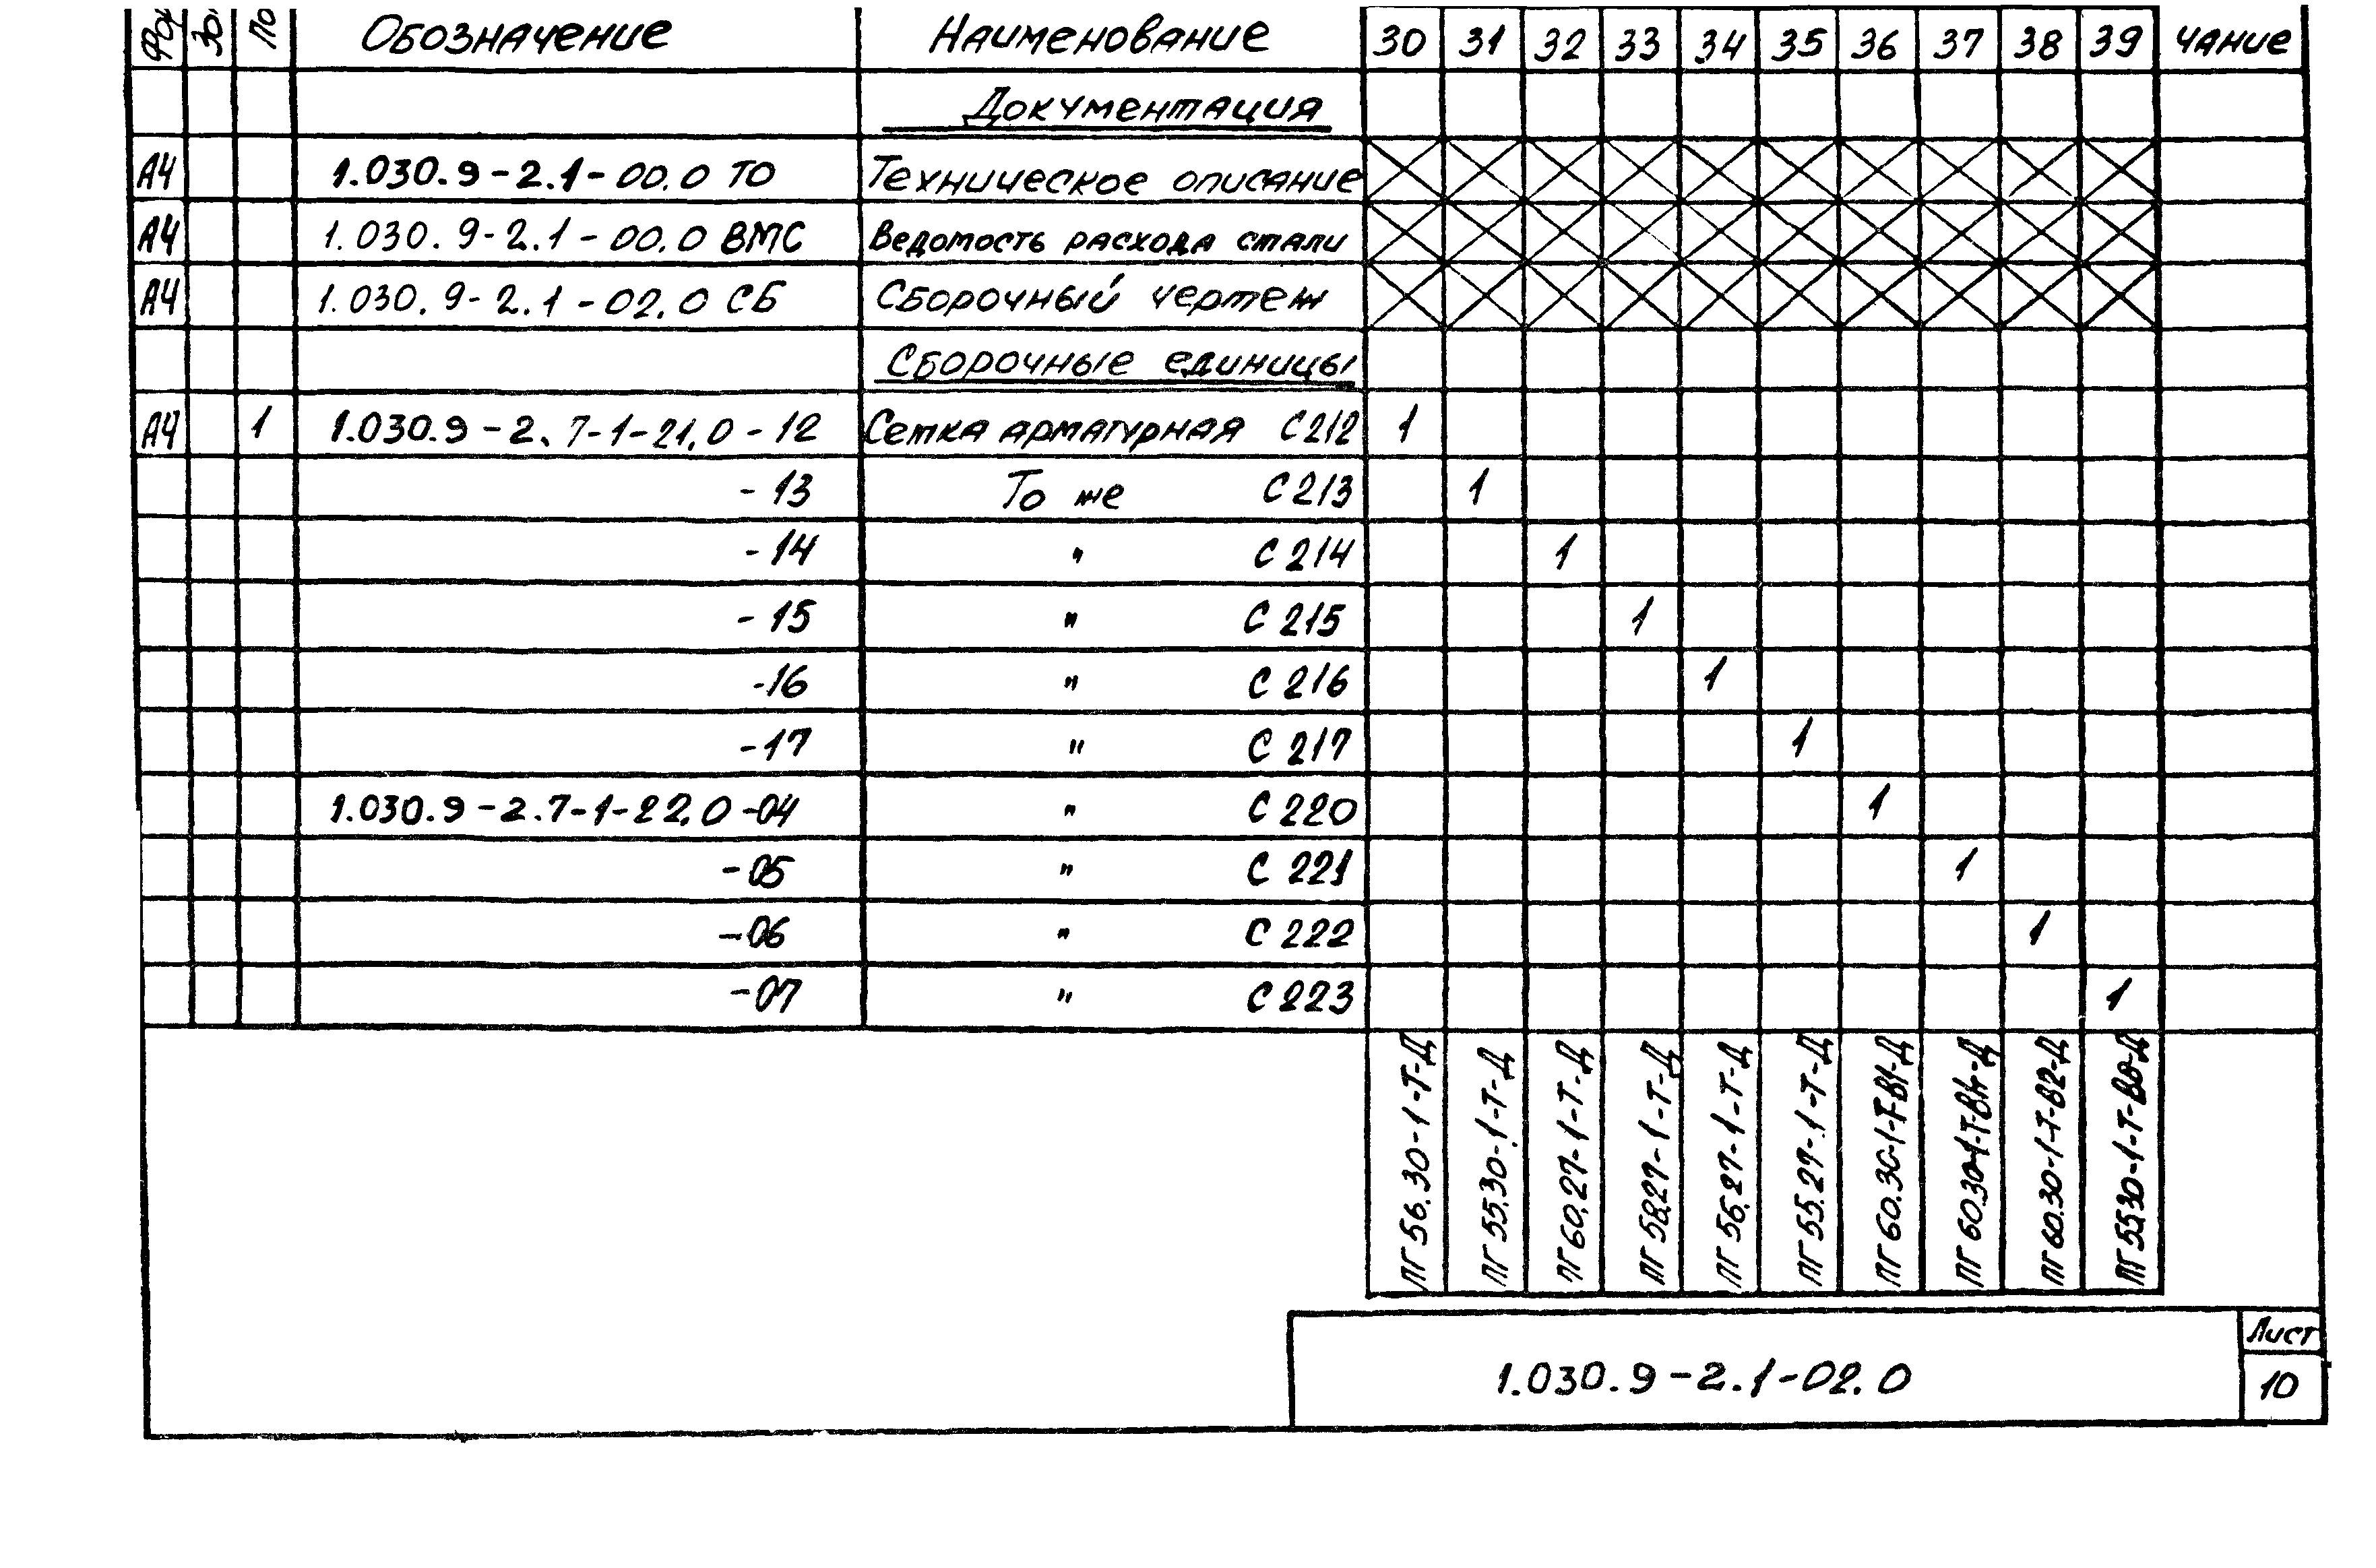 Обозначение Наименование 30 31 32 33 34 35 36 37 38 39 чание
Документация
А4 1.030.9-2.1-00.0 ТО Техническое описание
А4 1.030.9-2.1-00.0 ВМС Ведомость расхода стали
А4 1.030.9-2.1-02.0 СБ Сборочный чертеж
Сборочные единицы
А4 1 1.030.9-2.7-1-21.0-12 Сетка арматурная С212 1
-13 То же С213 1
-14 " С214 1
-15 " С215 1
-16 " С216 1
-17 " С217 1
1.030.9-2.7-1-22.0-04 " С220 1
-05 " С221 1
-06 " С222 1
-07 " С223 1
ПГ 56.30-1-Т-Д
ПГ 55.30-1-Т-Д
ПГ 60.27-1-Т-Д
ПГ 58.27-1-Т-Д
ПГ 56.27-1-Т-Д
ПГ 55.27-1-Т-Д
ПГ 60.30-1-Т-В1-Д
ПГ 60.30-1-Т-
ПГ 60.30-1-Т-В2-Д
ПГ 55.30-1-Т-
Лист
1.030.9-2.1-02.0 10